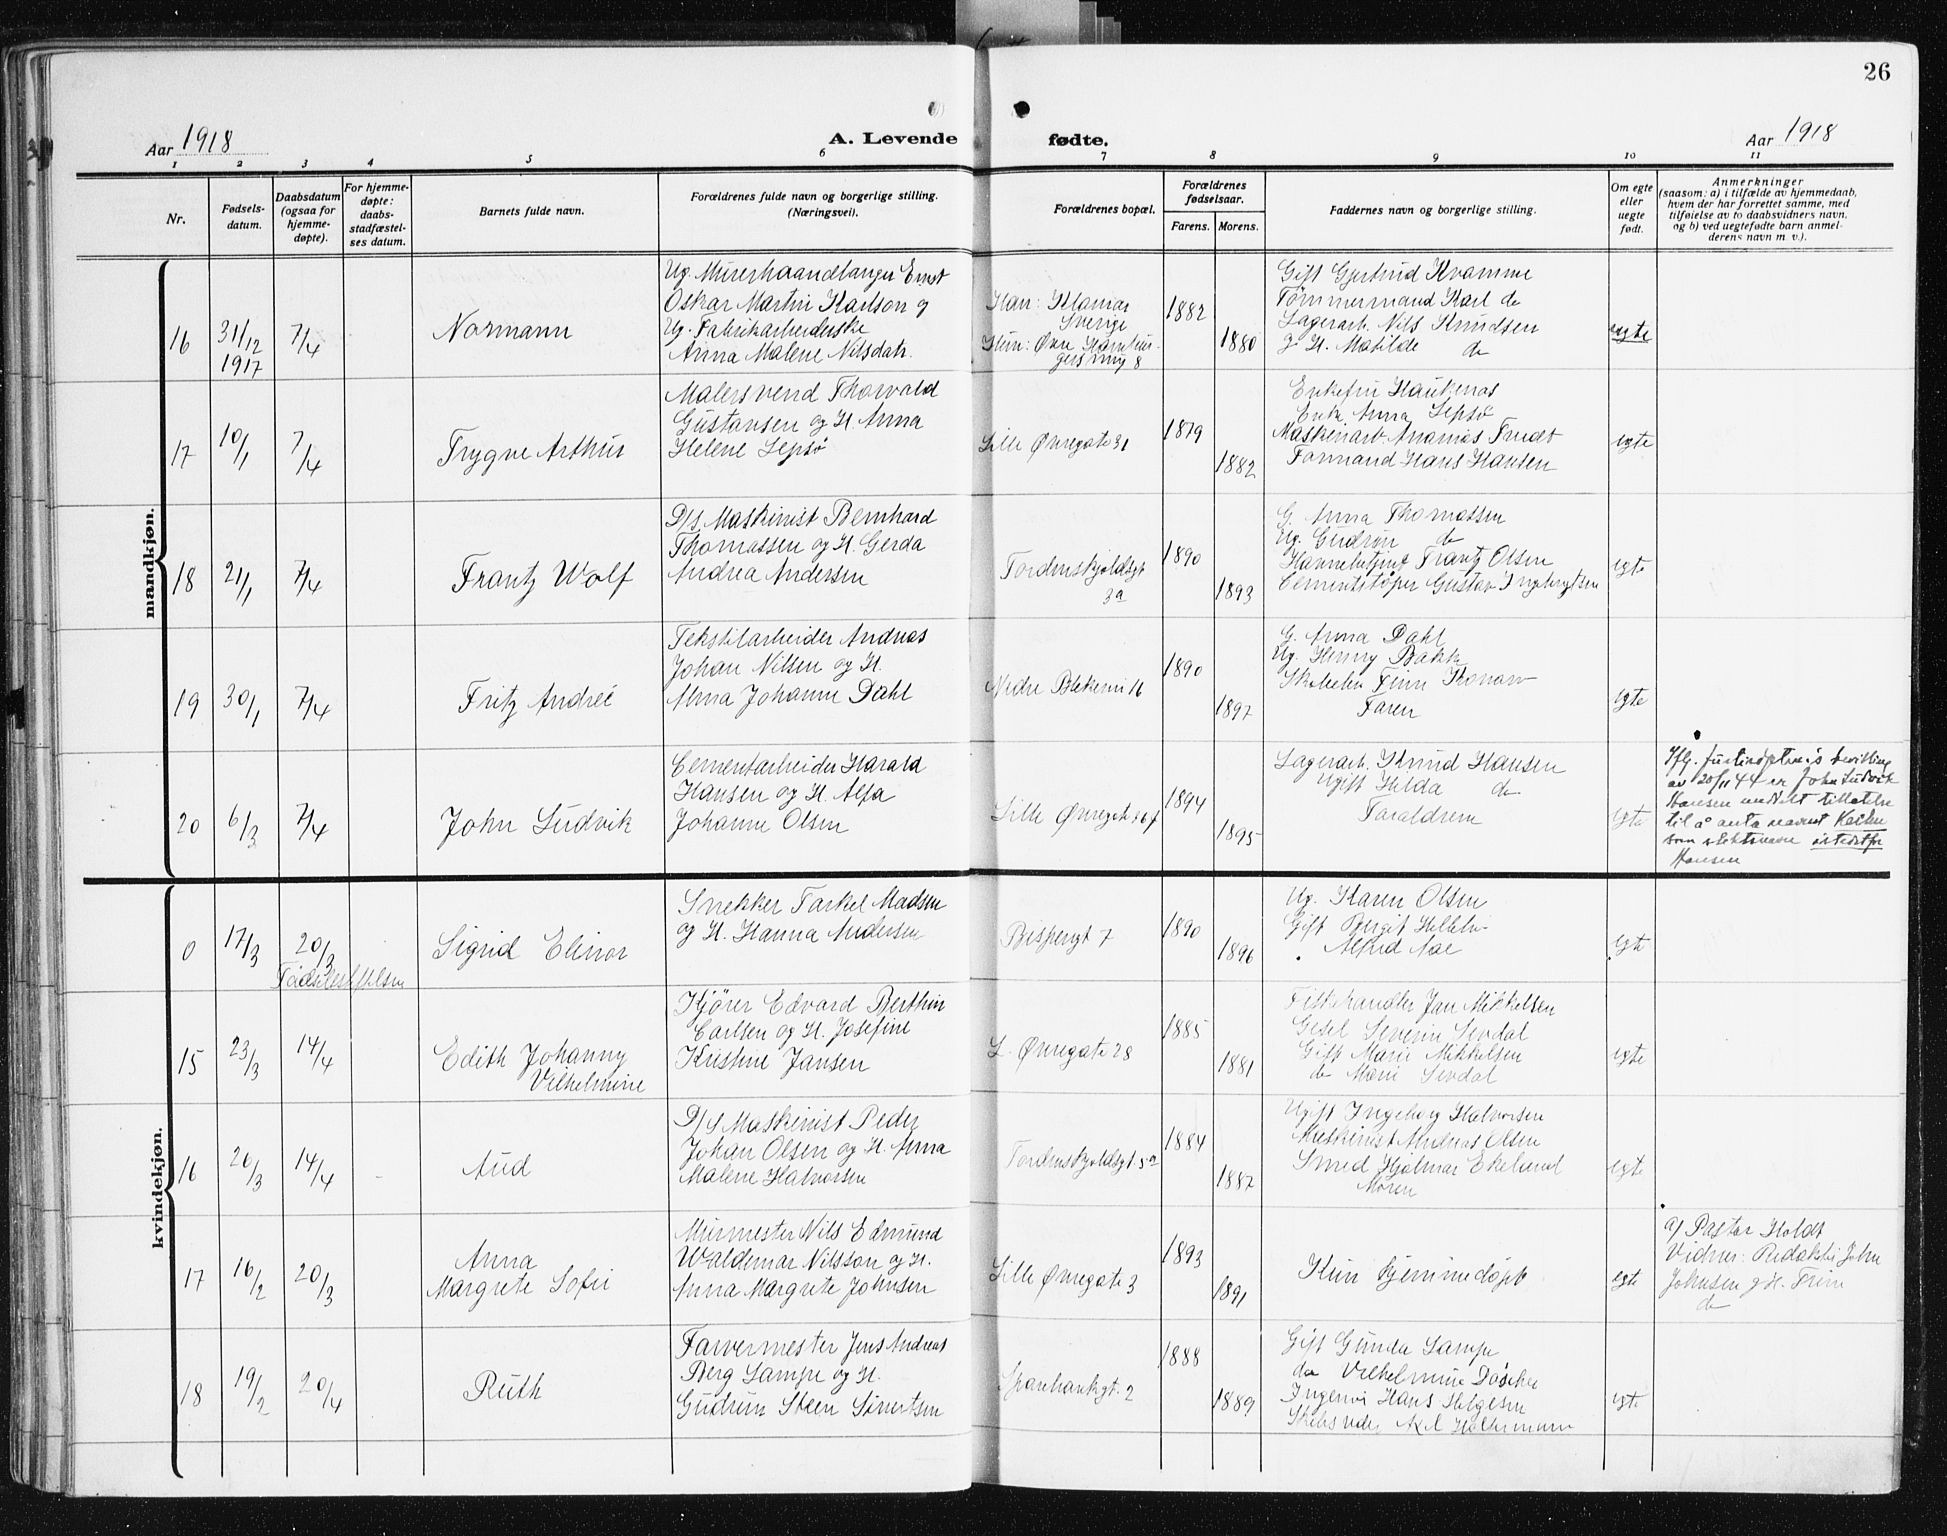 26
Aar 1918
A. Levende fødte.
Aar 1918
1 2 3 4 5 6 7 8 9 10 11
Nr.
Fødsels-
datum.
Daabsdatum
(ogsaa for
hjemme-
døpte).
For hjemme-
døpte:
daabs-
stadfæstel-
ses datum.
Barnets fulde navn.
Forældrenes fulde navn og borgerlige stilling.
(Næringsvei).
Forældrenes bopæl.
Forældrenes
fødselsaar.
Farens. Morens.
Faddernes navn og borgerlige stilling.
Om egte
eller
uegte
født.
Anmerkninger
(saasom: a) i tilfælde av hjemmedaab,
hvem der har forrettet samme, med
tilføielse av to daabsvidners navn,
og b) ved uegtefødte barn anmel-
derens navn m. v.).
mandkjøn.
16
31/12
1917
7/4
Normann
Ug. Murerhaandlanger Ernst
Oskar Martin Karlson og
Ug. Fabrikarbeiderske
Anna Malene Nilsdatr.
Han: Kalmar
Sverige
Hun: Øvre
8
1882
1880
Gift Gjertrud Kvamme
Tømmermand Karl do
Lagerarb. Nils Knudsen
g. H. Matilde do
uegte
17
10/1
7/4
Trygve Arthur
Malersvend Thorvald
Gustavsen og H. Anna
Helene Sepsø
Lille Øvregate 31
1879
1882
Enkefru Haukenas
Enk. Anna Sepsø
Maskinarb. Ananias
Formand Hans Hansen
egte
18
21/1
7/4
Frantz Wolf
D/s. Maskinist Bernhard
Thomassen og H. Gerda
Andrea Andersen
Tordenskjoldsgt
3a
1890
1893
G. Anna Thomassen
Ug. Gudrun do
Havnebetjent Frantz Olsen
Cementstøper Gustav Ingebrigtsen
egte
19
30/1
7/4
Fritz André
Tekstilarbeider Andreas
Johan Nilsen og H.
Anna Johanne Dahl
Nedre Blekevei 16
1890
1897
G. Anna Dahl
Ug. Henny Bakk
Finn Konow
Faren
egte
20
6/3
7/4
John Ludvik
Cementarbeider Harald
Hansen og H. Alfa
Johanne Olsen
Lille Øvregate
1894
1895
Lagerarb. Knud Hansen
Ugift Hilda do
Foraldrene
egte
Ifg. justisdptmts bevilling
av 20/11 44 er John Ludvik
Hansen meddelt tillatelse
til å anta navnet
som slektsnavn istedetfor
Hansen
kvindekjøn.
0
17/3
20/3
Fødselsstiftelsen
Sigrid Elinor
Snekker Torkel Madsen
og H. Hanna Andersen
Bispengt 7
1890
1896
Ug. Karen Olsen
Gift Bergit
Alfred Aae
egte
15
23/3
14/4
Edith Johanny
Vilhelmine
Kjører Edvard Berthin
Carlsen og H. Josefine
Kristine Jansen
L. Øvregate 28
1885
1881
Fiskehandler Jan Mikkelsen
Gesel Severin Sevdal
Gift Marie Mikkelsen
do Marie Sevdal
egte
16
20/3
14/4
Aud
D/s Maskinist Peder
Johan Olsen og H. Anna
Malene Halvorsen
Tordenskjoldsgt. 5a
1884
1887
Ugift Ingeborg Halvorsen
Maskinist Andreas Olsen
Smed Hjalmar Ekelund
Moren
egte
17
16/2
20/3
Anna
Margrete Sofie
Murmester Nils Edmund
Waldemar Nilsson og H.
Anna Margrete Johnsen
Lille Øvregate 3
1893
1891
Kun hjemmedøpt
egte
af Pastor Holdt
Vidner: Redaktør John
Johnsen g H. Trine
do
18
19/2
20/4
Ruth
Farvermester Jens Andreas
Berg Sampe og H.
Gudrun Steen Sivertsen
Sparebankgt. 2
1888
1889
Gift Gunda Sampe
do Vilhelmine Døscher
Ingeniør Hans Helgesen
Skibsreder Axel
egte